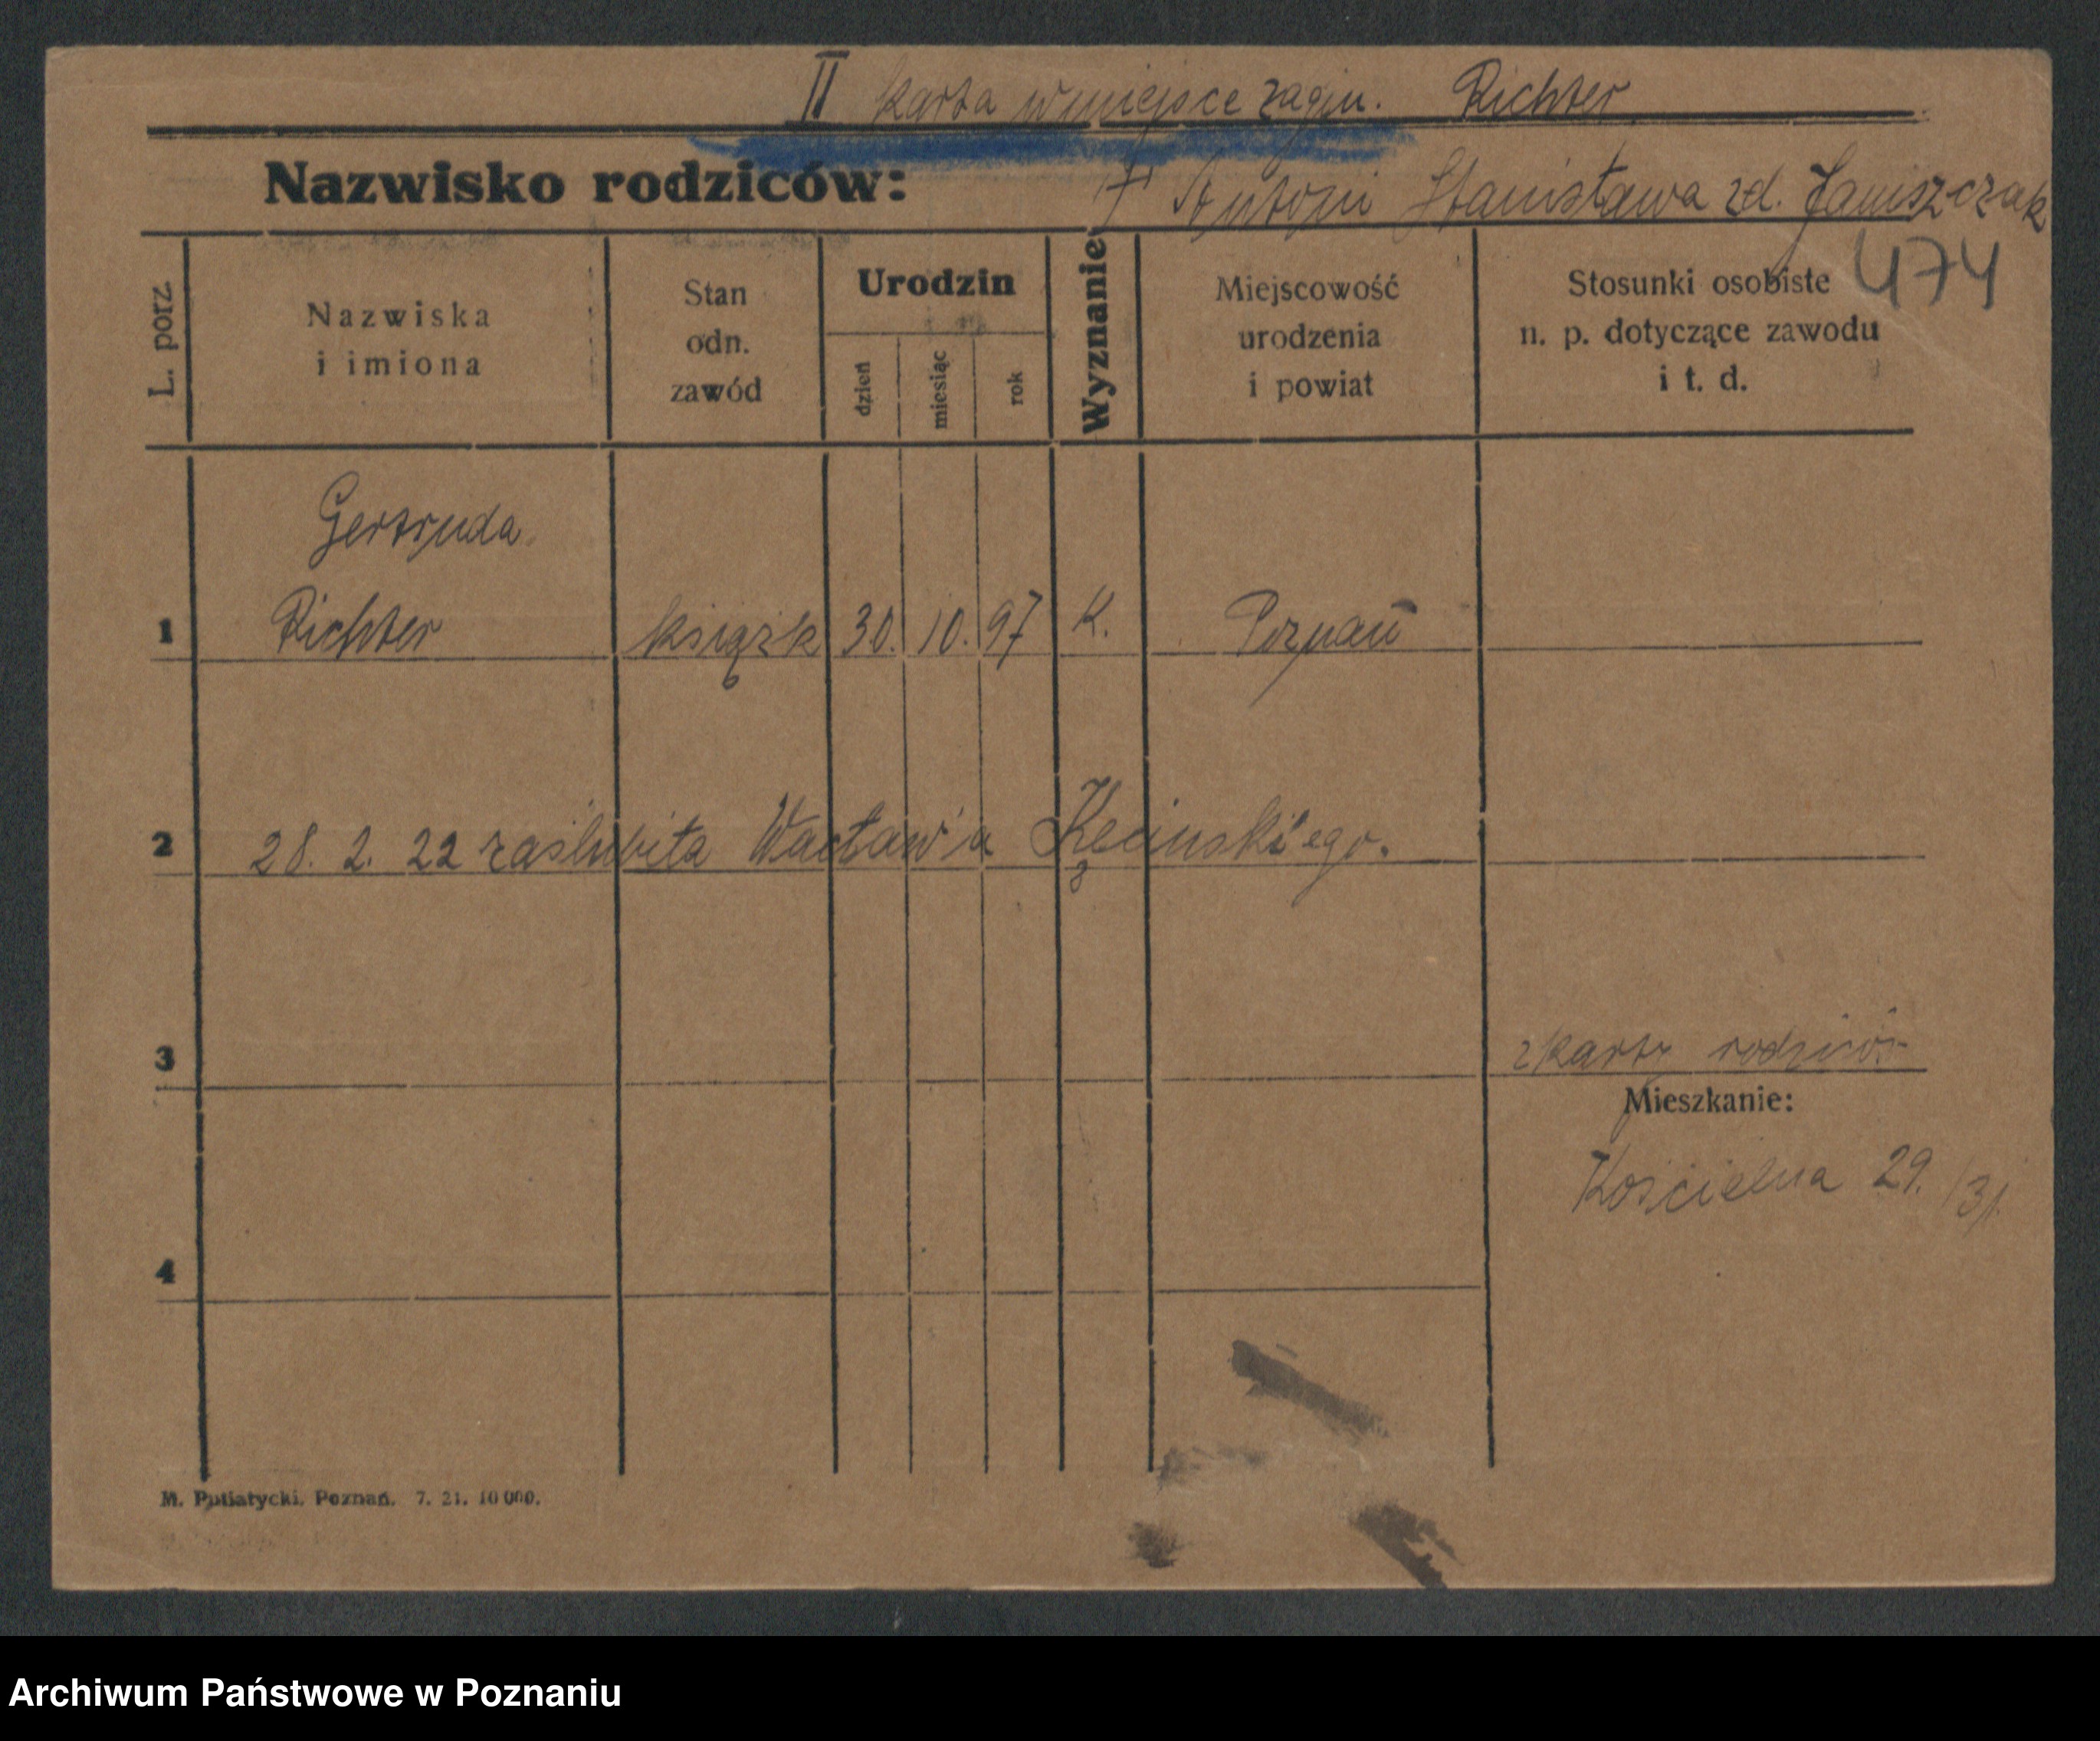 II karta w miejsce zagin. Richter
Nazwisko rodziców: † Antoni Stanisława zd. Janiszczak
474
L. porz.
Nazwiska
i imiona
Stan
odn.
zawód
Urodzin
dzień
miesiąc
rok
Wyznanie
Miejscowość
urodzenia
i powiat
Stosunki osobiste
n. p. dotyczące zawodu
i t. d.
Gertruda
1 Richter książk 30. 10. 97 K. Poznań
2 28. 2. 22 zaślubiła Wacław'a Kęcinski'ego.
3 z karty rodziców
Mieszkanie:
Kościelna 29.
4
M. Putiatycki, Poznań. 7. 21. 10 000.
Archiwum Państwowe w Poznaniu